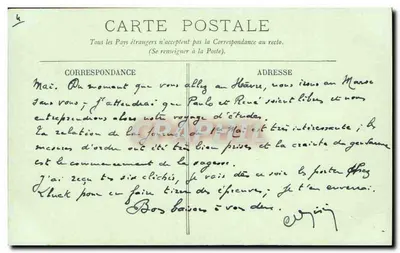 4
CARTE POSTALE
Tous les Pays étrangers n'acceptent pas la Correspondance au recto.
(Se renseigner à la Poste).
CORRESPONDANCE
ADRESSE
Mais du moment que vous allez au Hâvre, nous irons au
sans vous; j'attendrai que Paul et René soient libres et nous
entreprendrons alors notre voyage d'études.
La relation de la du 1er Mai est très intéressante; les
mesures d'ordre ont été bien prises et la crainte du gendarme
est le commencement de la sagesse.
J'ai reçu tes six clichés, je vais dès ce soir les porter chez
pour en faire tirer des épreuves; je t'en enverrai.
Bons baisers à vous deux.